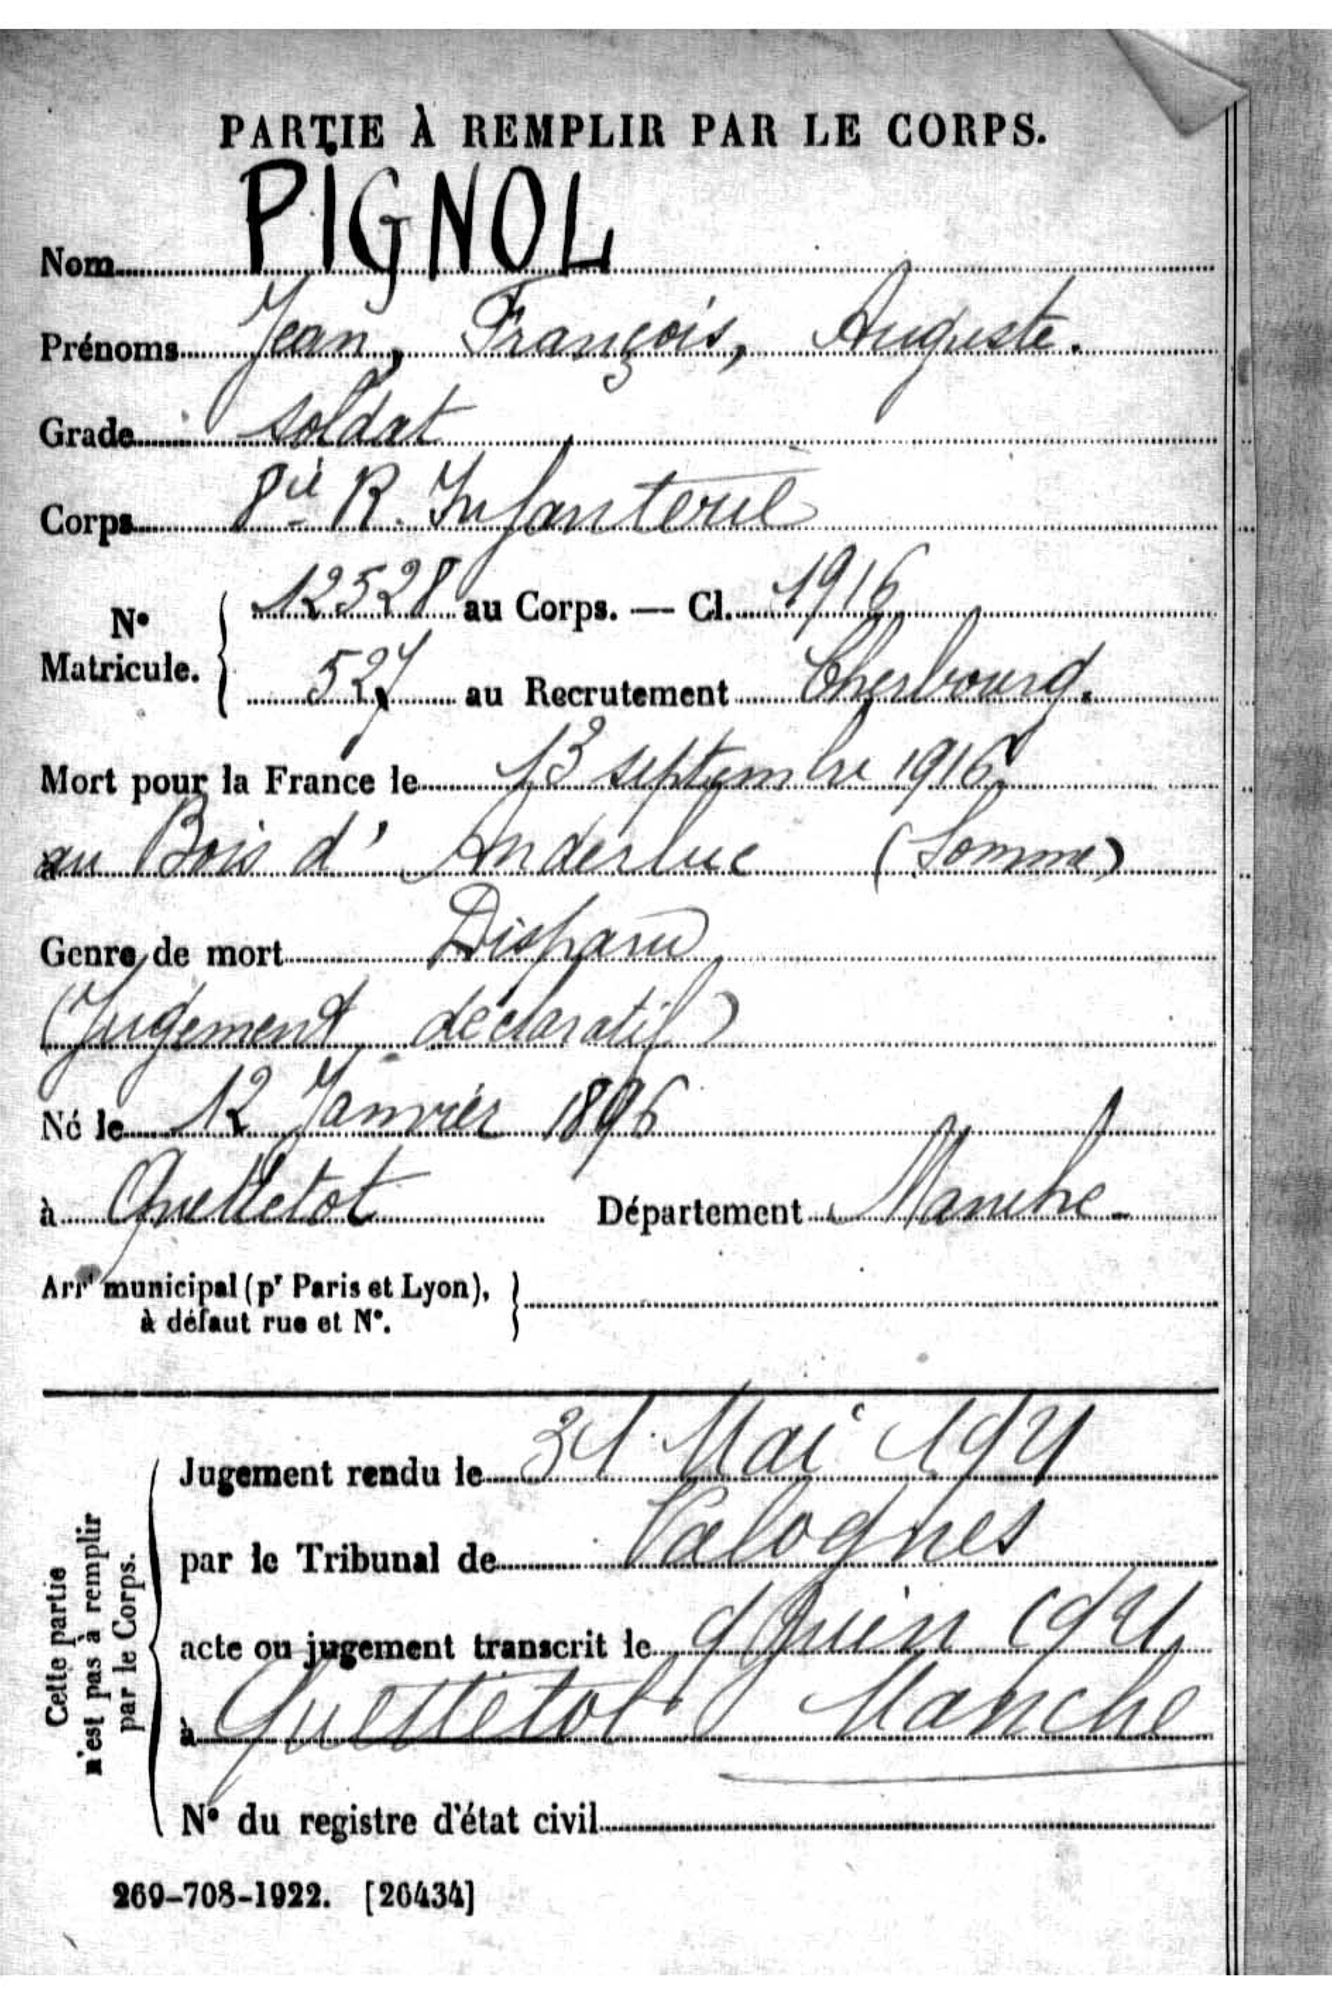 PARTIE À REMPLIR PAR LE CORPS.
Nom PIGNOL
Prénoms Jean, François, Auguste.
Grade soldat
Corps 8ie R. Infanterie
N° Matricule. { 12528 au Corps. — Cl. 1916
527 au Recrutement Cherbourg.
Mort pour la France le 13 septembre 1916
au Bois d' Anderlue (Somme)
Genre de mort Disparu
(Jugement déclaratif)
Né le 12 Janvier 1896
à Quettetot Département Manche
Arrt municipal (pr Paris et Lyon), }
à défaut rue et N°.
Cette partie
n'est pas à remplir
par le Corps.
Jugement rendu le 31 Mai 1921
par le Tribunal de Valognes
acte ou jugement transcrit le 9 Juin 1921
à Quettetot Manche
N° du registre d'état civil
269-708-1922. [26434]